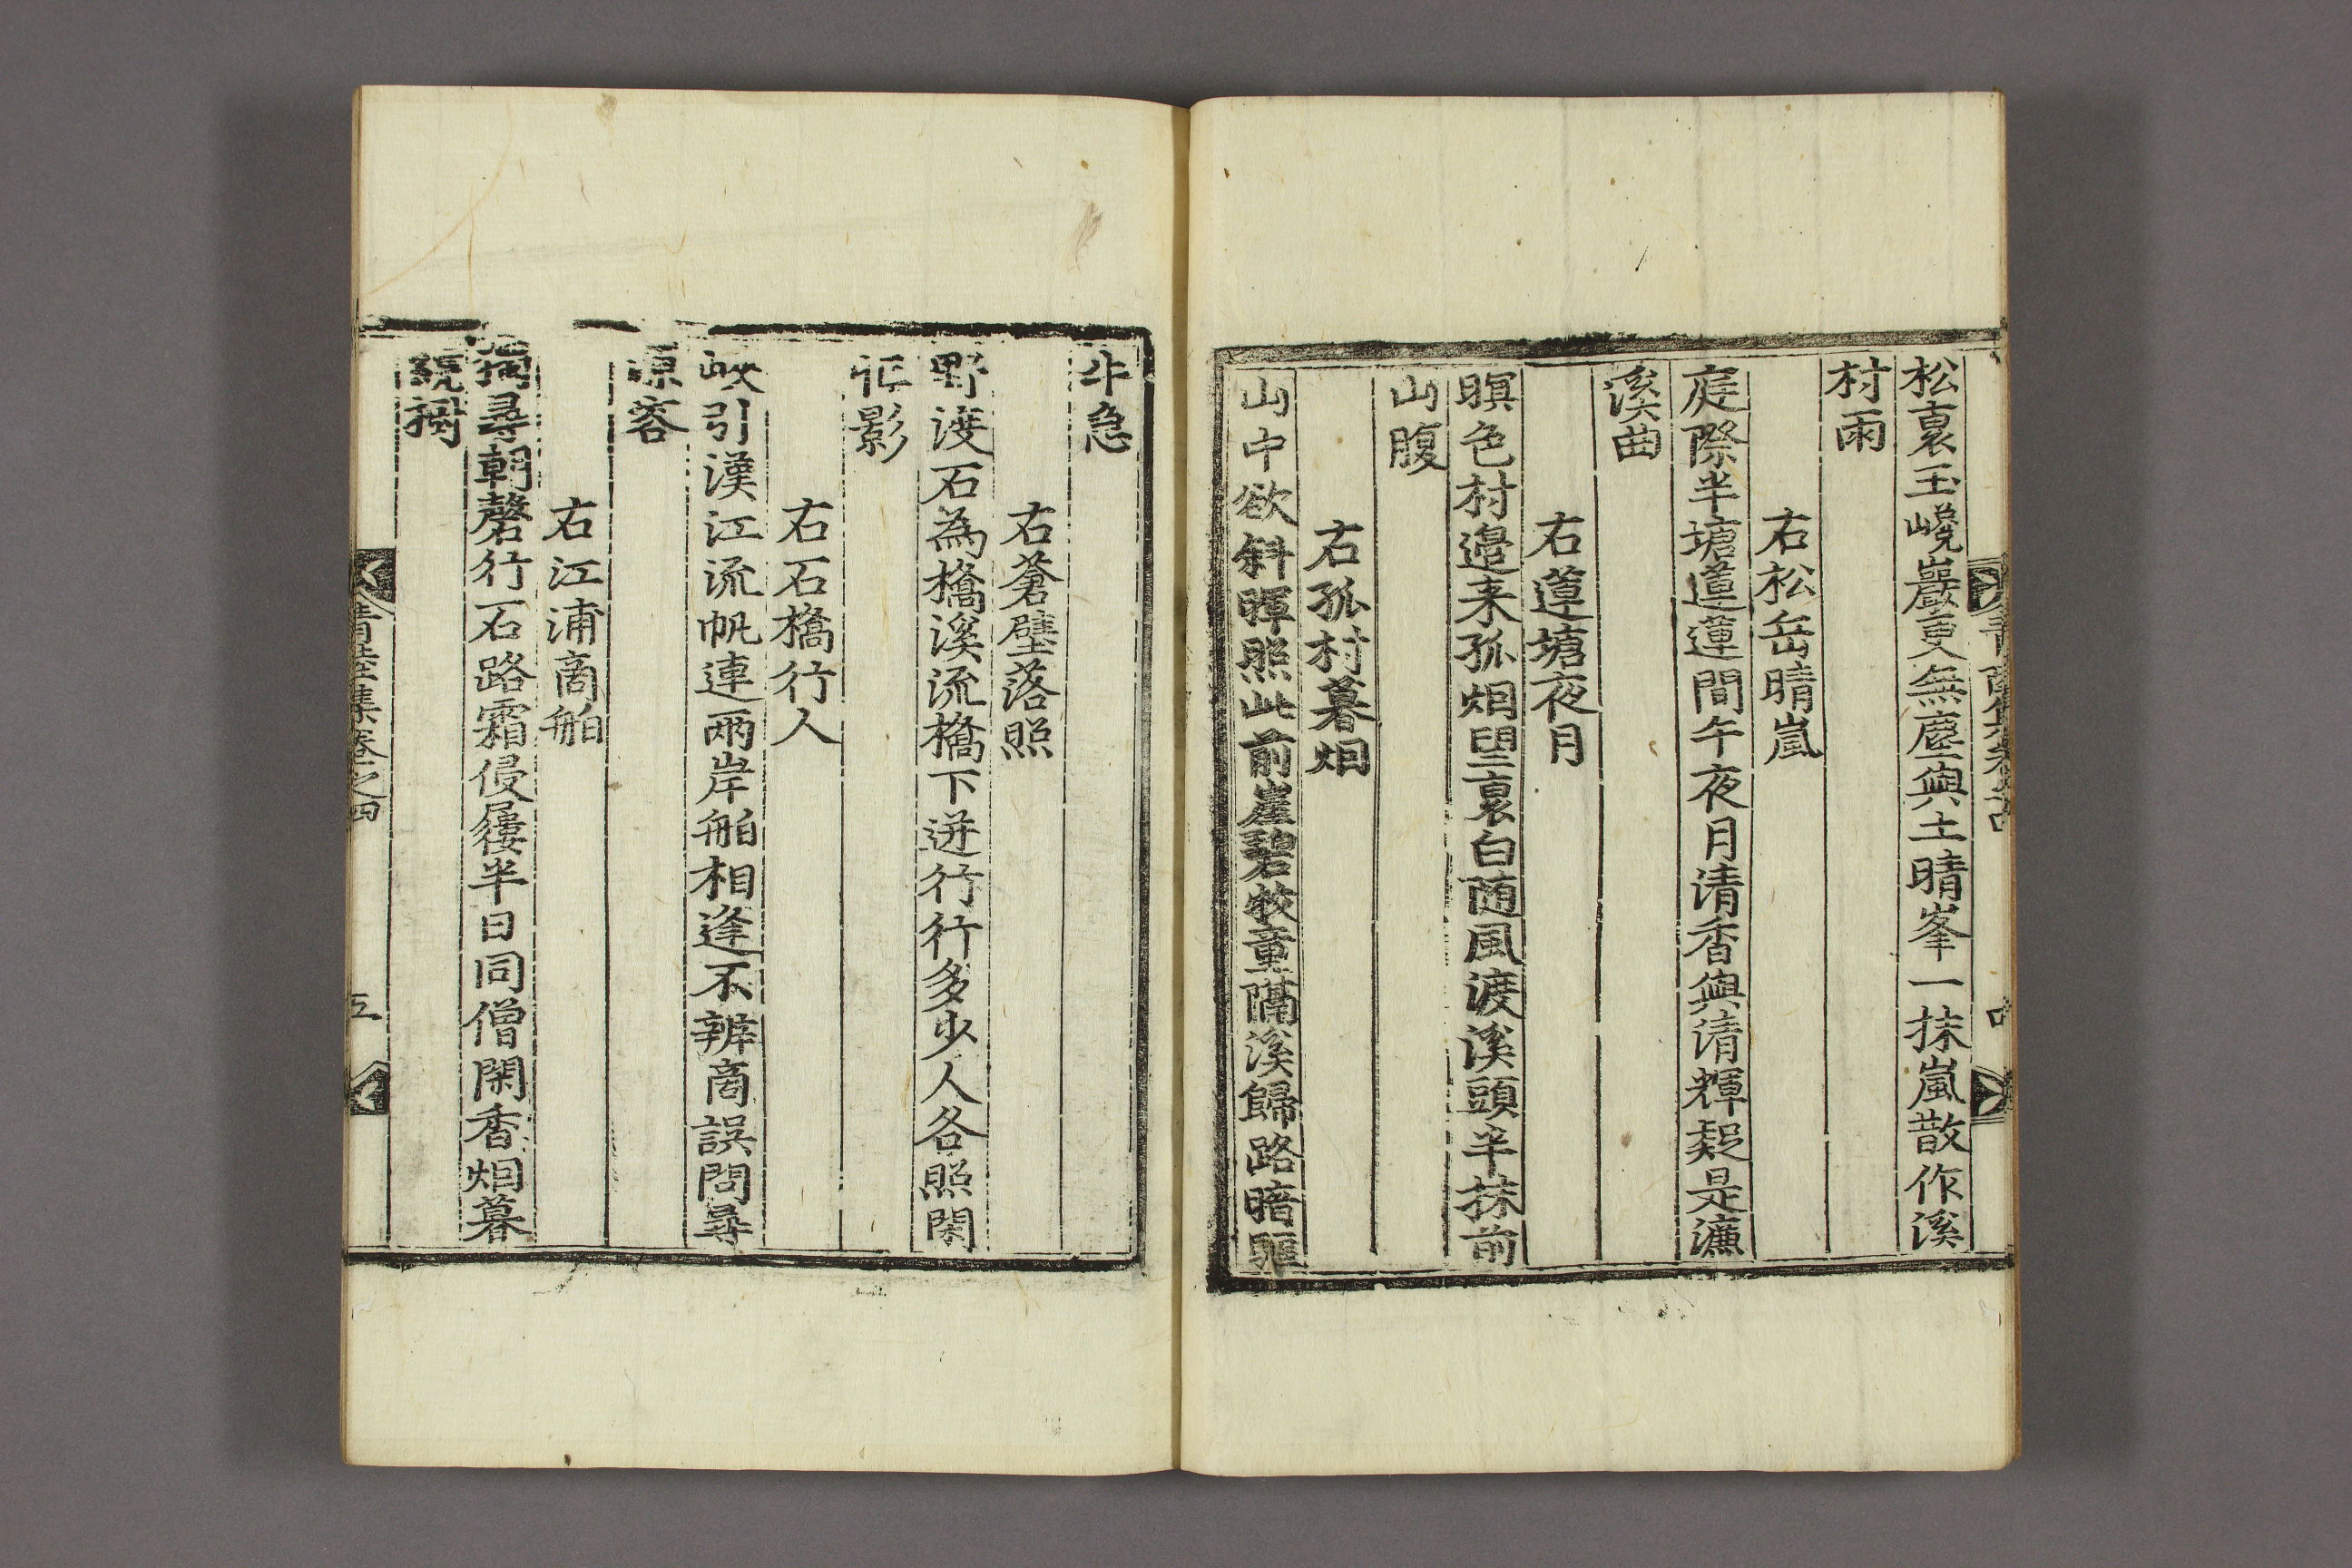 松裏玉巉巖更無塵與土晴峯一抹嵐散作溪
村雨
右松岳晴嵐
庭際半塘蓮蓮間午夜月清香與清輝疑是濂
溪曲
右蓮塘夜月
暝色村邉来孤烟望裏白随風渡溪頭半抹前
山腹
右孤村暮烟
山中欲斜暉照此前崖碧牧童隔溪歸路暗驅
牛急
右蒼壁落照
野渡石為橋溪流橋下迸行行多少人各照閑
忙影
右石橋行人
峽引漢江流帆連兩岸舶相逢不辨商誤問尋
源客
右江浦商舶
獨尋朝磬行石路霜侵屨半日同僧閑香烟暮
集卷之四
五